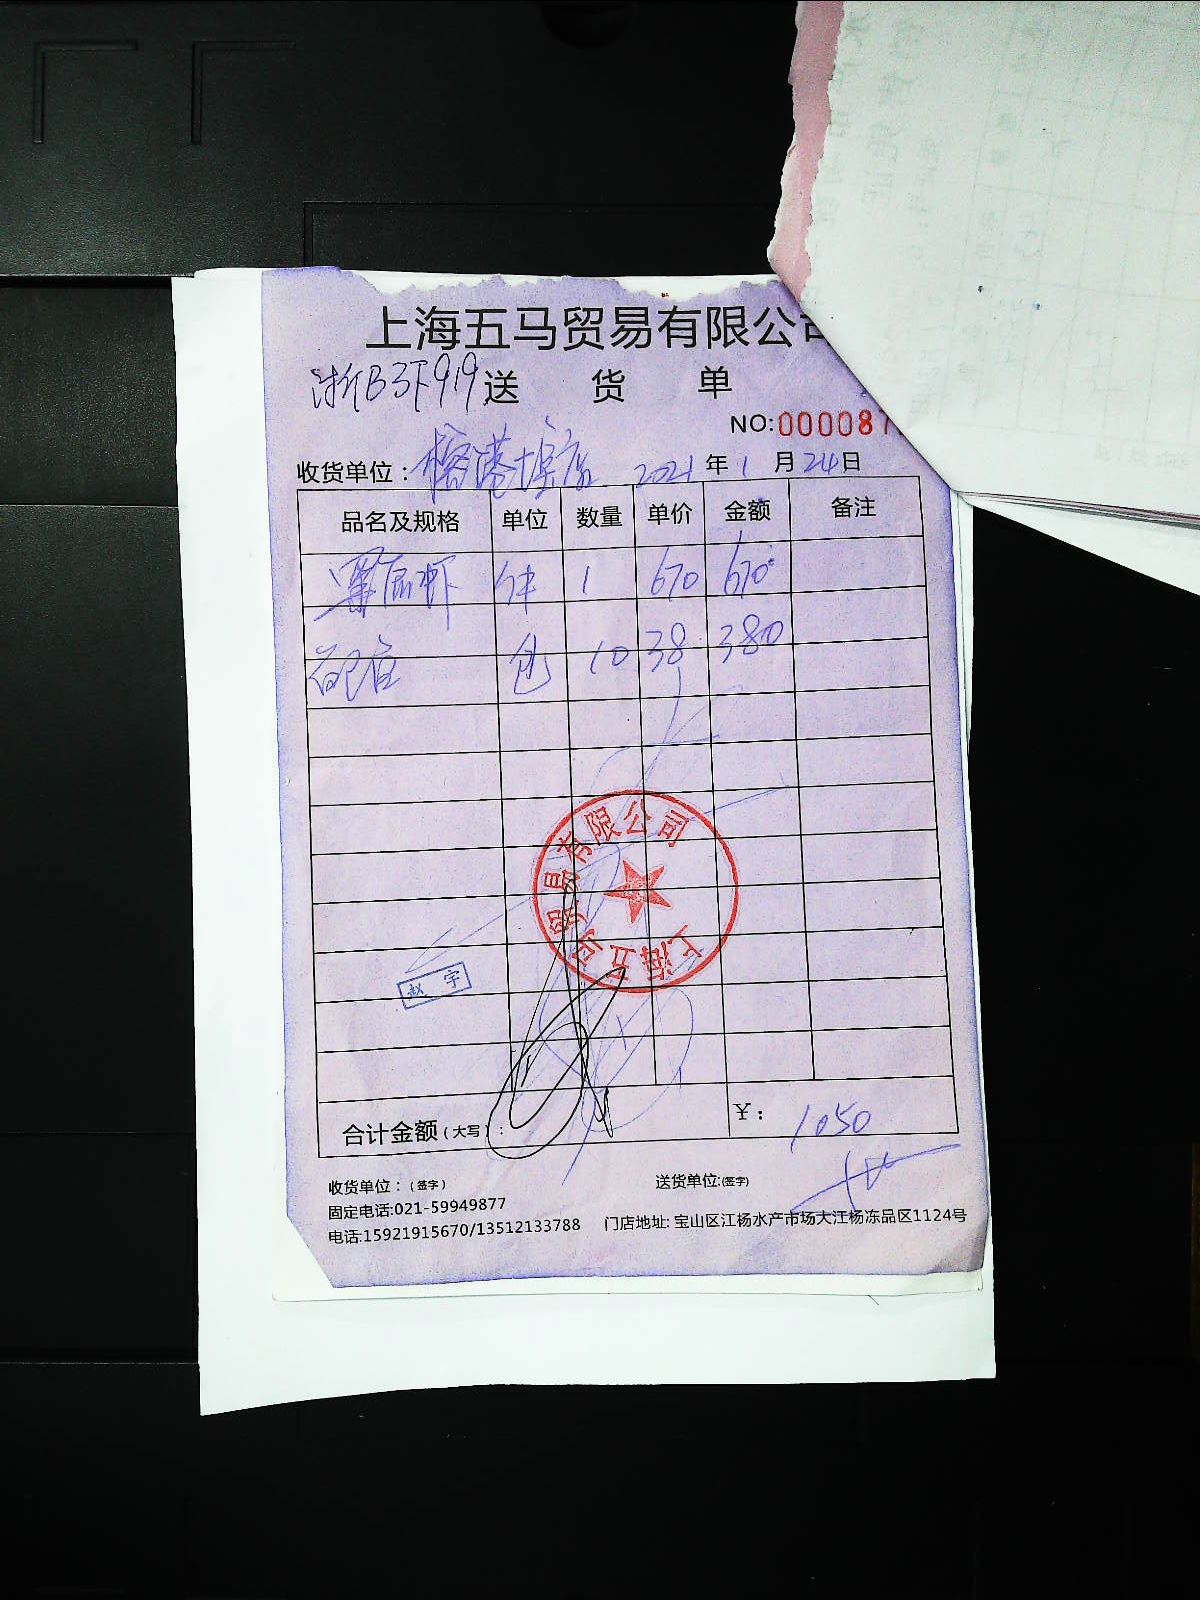 上海五马贸易有限公司
浙B3F919 送 货 单
NO:000087
收货单位： 2021 年 1 月 24 日
品名及规格 单位 数量 单价 金额 备注
虾 件 1 670 670
包 10 38 380
上海五马贸易有限公司
赵宇
合计金额（大写）： ￥： 1050
收货单位：（签字） 送货单位:(签字)
固定电话:021-59949877
电话:15921915670/13512133788 门店地址: 宝山区江杨水产市场大江杨冻品区1124号